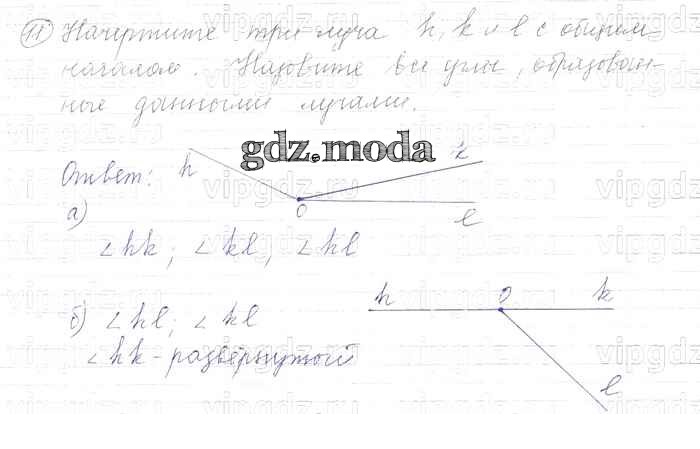 11 Начертите три луча h, k и l с общим
началом. Назовите все углы, образован-
ные данными лучами.
gdz.moda
Ответ:
h k
а) O l
∠hk; ∠kl; ∠hl
h O k
б) ∠hl; ∠kl
∠hk - развёрнутый
l
vipgdz